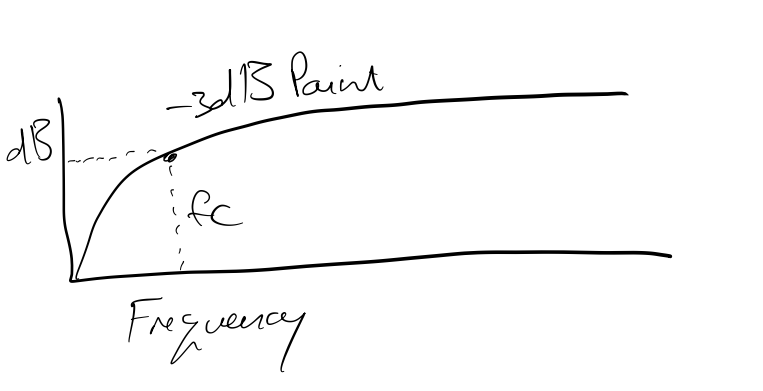 -3dB Point
dB
fc
Frequency